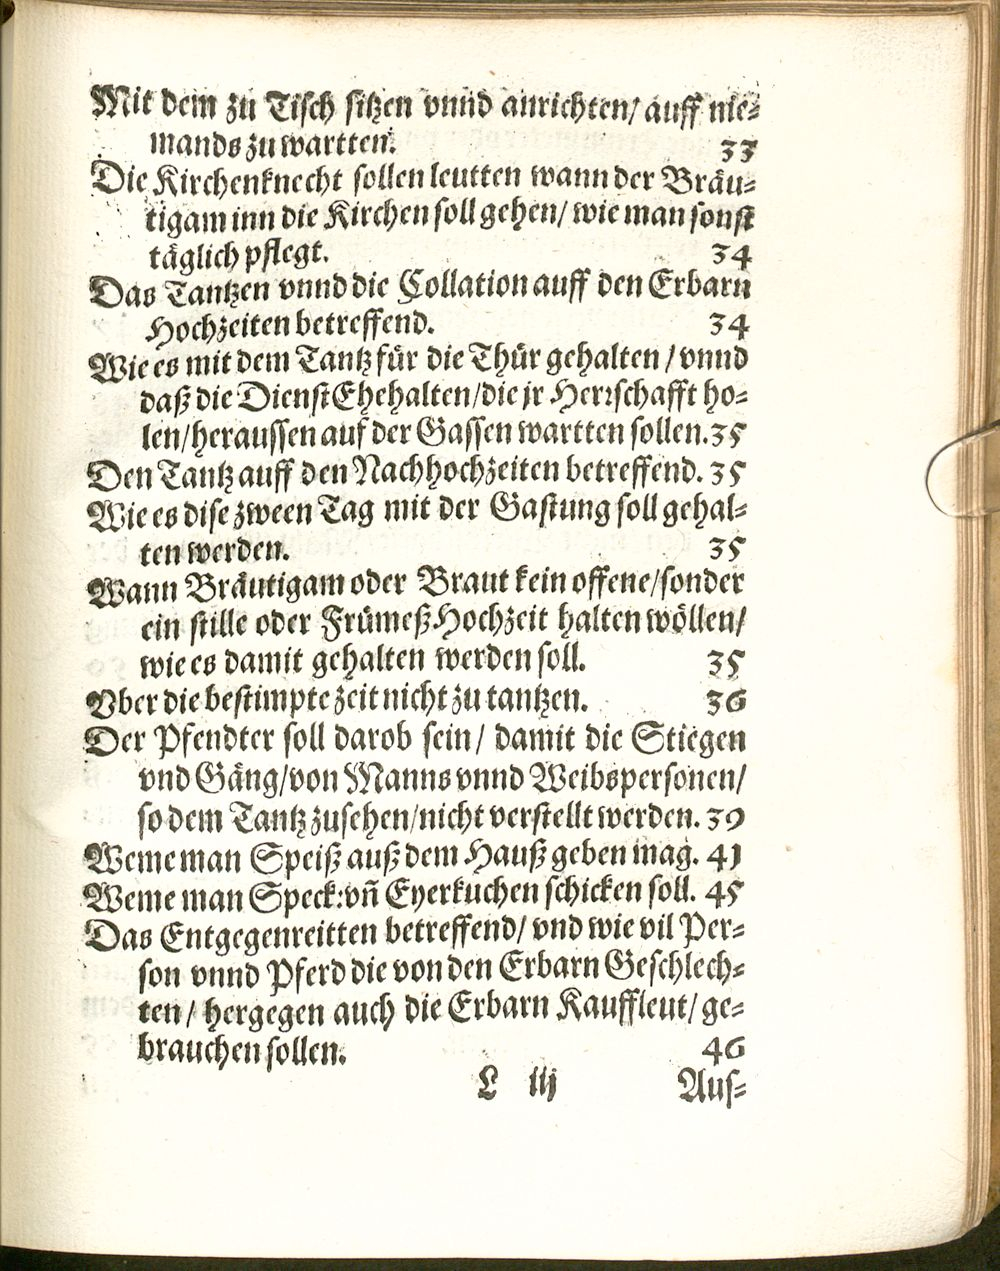 Mit dem zu Tisch sitzen vnnd anrichten/ auff nie⸗
mands zu wartten. 33
Die Kirchenknecht sollen leutten wann der Bräu⸗
tigam inn die Kirchen soll gehen/ wie man sonst
täglich pflegt. 34
Das Tantzen vnnd die Collation auff den Erbarn
Hochzeiten betreffend. 34
Wie es mit dem Tantz für die Thür gehalten / vnnd
daß die DienstEhehalten/die jr Herrschafft ho⸗
len/heraussen auf der Gassen wartten sollen. 35
Den Tantz auff den Nachhochzeiten betreffend. 35
Wie es dise zween Tag mit der Gastung soll gehal⸗
ten werden. 35
Wann Bräutigam oder Braut kein offene/sonder
ein stille oder FrümeßHochzeit halten wöllen/
wie es damit gehalten werden soll. 35
Vber die bestimpte zeit nicht zu tantzen. 36
Der Pfendter soll darob sein/ damit die Stiegen
vnd Gäng/von Manns vnnd Weibspersonen/
so dem Tantz zusehen/nicht verstellt werden. 39
Weme man Speiß auß dem Hauß geben mag. 41
Weme man Speck:vñ Eyerkuchen schicken soll. 45
Das Entgegenreitten betreffend/ vnd wie vil Per⸗
son vnnd Pferd die von den Erbarn Geschlech⸗
ten / hergegen auch die Erbarn Kauffleut/ ge⸗
brauchen sollen. 46
L iij Aus⸗